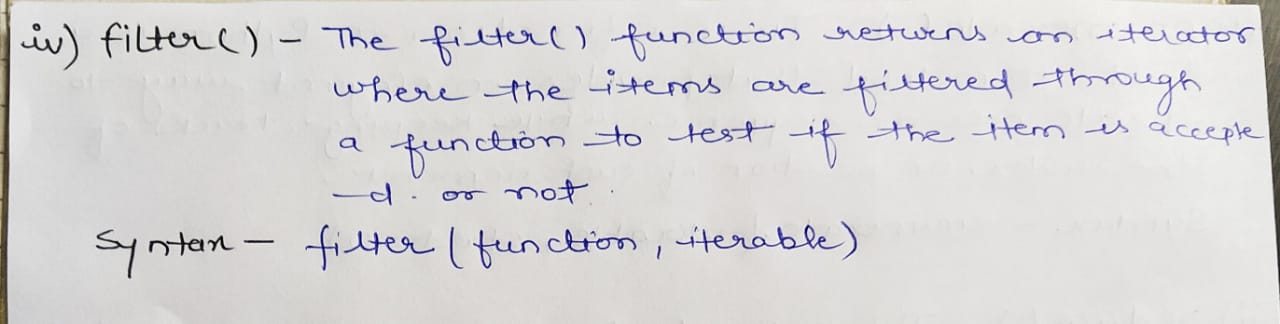 iv) filter() - The filter() function returns an iterator
where the items are filtered through
a function to test if the item is accepte
-d. or not.
Syntax - filter (function, iterable)